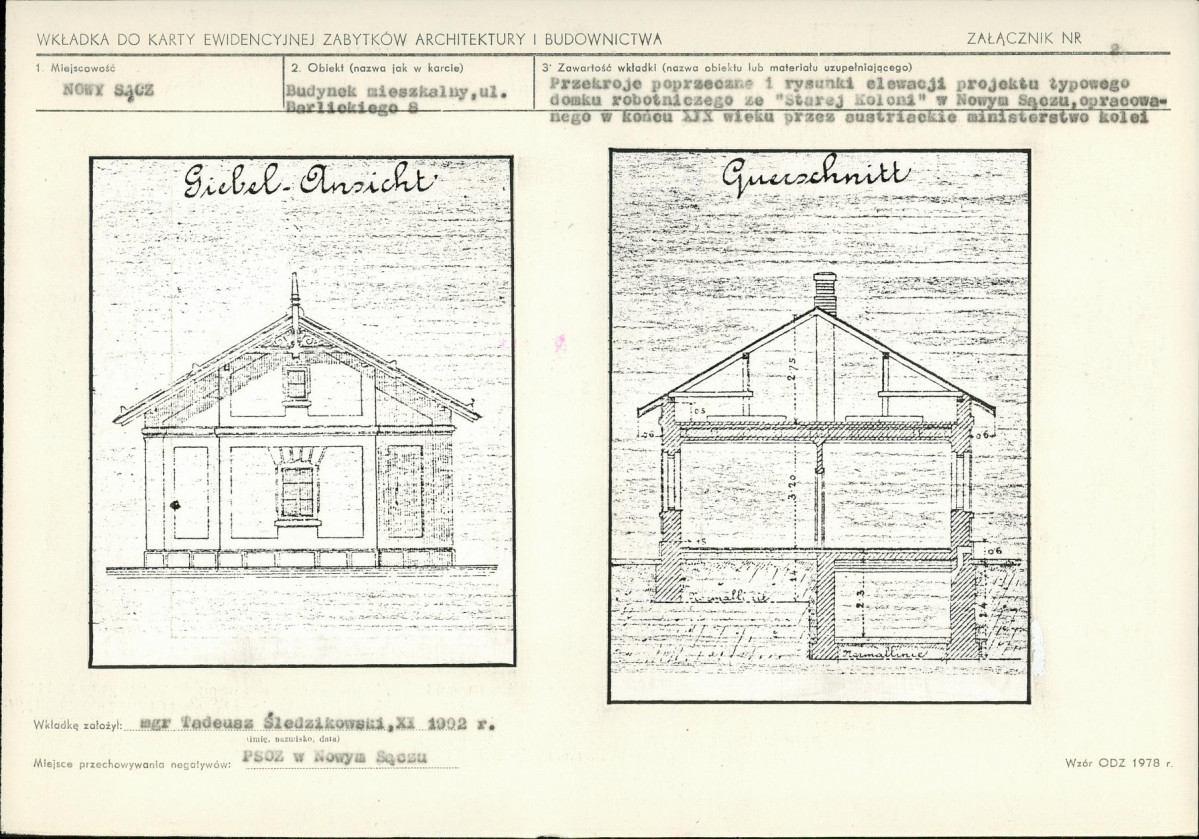 WKŁADKA DO KARTY EWIDENCYJNEJ ZABYTKÓW ARCHITEKTURY I BUDOWNICTWA
ZAŁĄCZNIK NR 2
1. Miejscowość
NOWY SĄCZ
2. Obiekt (nazwa jak w karcie)
Budynek mieszkalny,ul.
Barlickiego 8
3. Zawartość wkładki (nazwa obiektu lub materiału uzupełniającego)
Przekroje poprzeczne i rysunki elewacji projektu typowego
domku robotniczego ze "Starej Koloni" w Nowym Sączu,opracowa-
nego w końcu XIX wieku przez austriackie ministerstwo kolei
Giebel-Ansicht
Querschnitt
2.75
05
06
06
3.20
15
06
2.3
2.4
Normallinie
Normallinie
Wkładkę założył: mgr Tadeusz Śledzikowski,XI 1992 r.
(imię, nazwisko, data)
Miejsce przechowywania negatywów: PSOZ w Nowym Sączu
Wzór ODZ 1978 r.